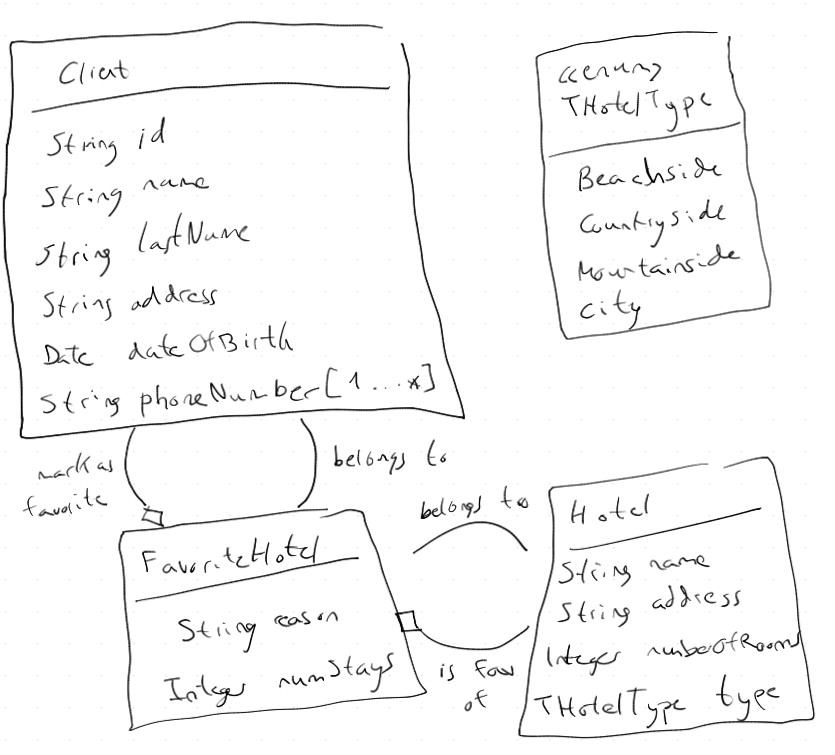 Client
String id
String name
String lastName
String address
Date dateOfBirth
String phoneNumber[1...*]
<<enum>>
THotelType
Beachside
Countryside
Mountainside
City
mark as
favorite
belongs to
FavoriteHotel
String reason
Integer numStays
belongs to
is fav
of
Hotel
String name
String address
Integer numberOfRooms
THotelType type